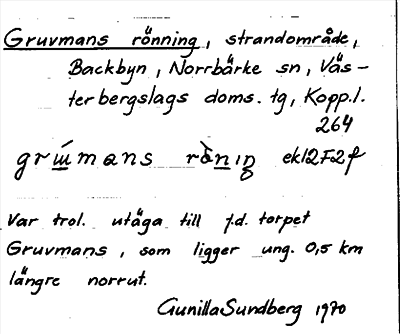 Gruvmans rönning, strandområde,
Backbyn, Norrbärke sn, Väs-
terbergslags doms. tg, Kopp.l.
264
ekl2F2f
Var trol. utäga till f.d. torpet
Gruvmans, som ligger ung. 0,5 km
längre norrut.
Gunilla Sundberg 1970